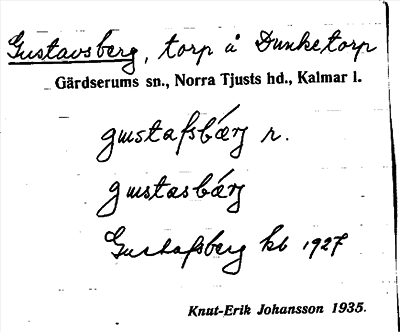 Gustavsberg, torp å Dunketorp
Gärdserums sn., Norra Tjusts hd., Kalmar l.
gustafsbærj r.
gustasbærj
Gustafsberg kb 1927
Knut-Erik Johansson 1935.